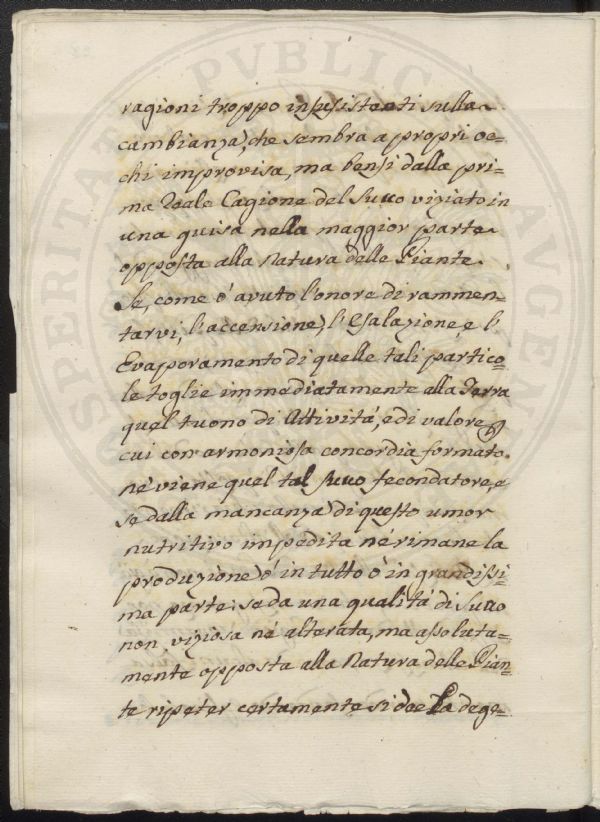 ragioni troppo insusistenti sulla
cambianza, che sembra a propri oc=
chi improvisa, ma bensi dalla pri=
ma Reale Cagione del Suco viziato in
una guisa nella maggior parte
opposta alla Natura delle Piante.
Se, come ó avuto l'onore di rammen=
tarvi, l'accensione, l'Esalazione, e l'
Evaporamento di quelle tali partico=
le toglie immediatamente alla Terra
quel tuono di Attività, e di valore
cui con armoniosa concordia formato
né viene quel tal suco fecondatore, e
se dalla mancanza di questo umor
nutritivo impedita né rimane la
produzione ó in tutto ó in grandissi=
ma parte: se da una qualitá di Suco
non viziosa né alterata, ma assoluta=
mente opposta alla Natura delle Pian=
te ripeter certamente si dee la dege=
PUBLIC
AUGEN
SPERITAT